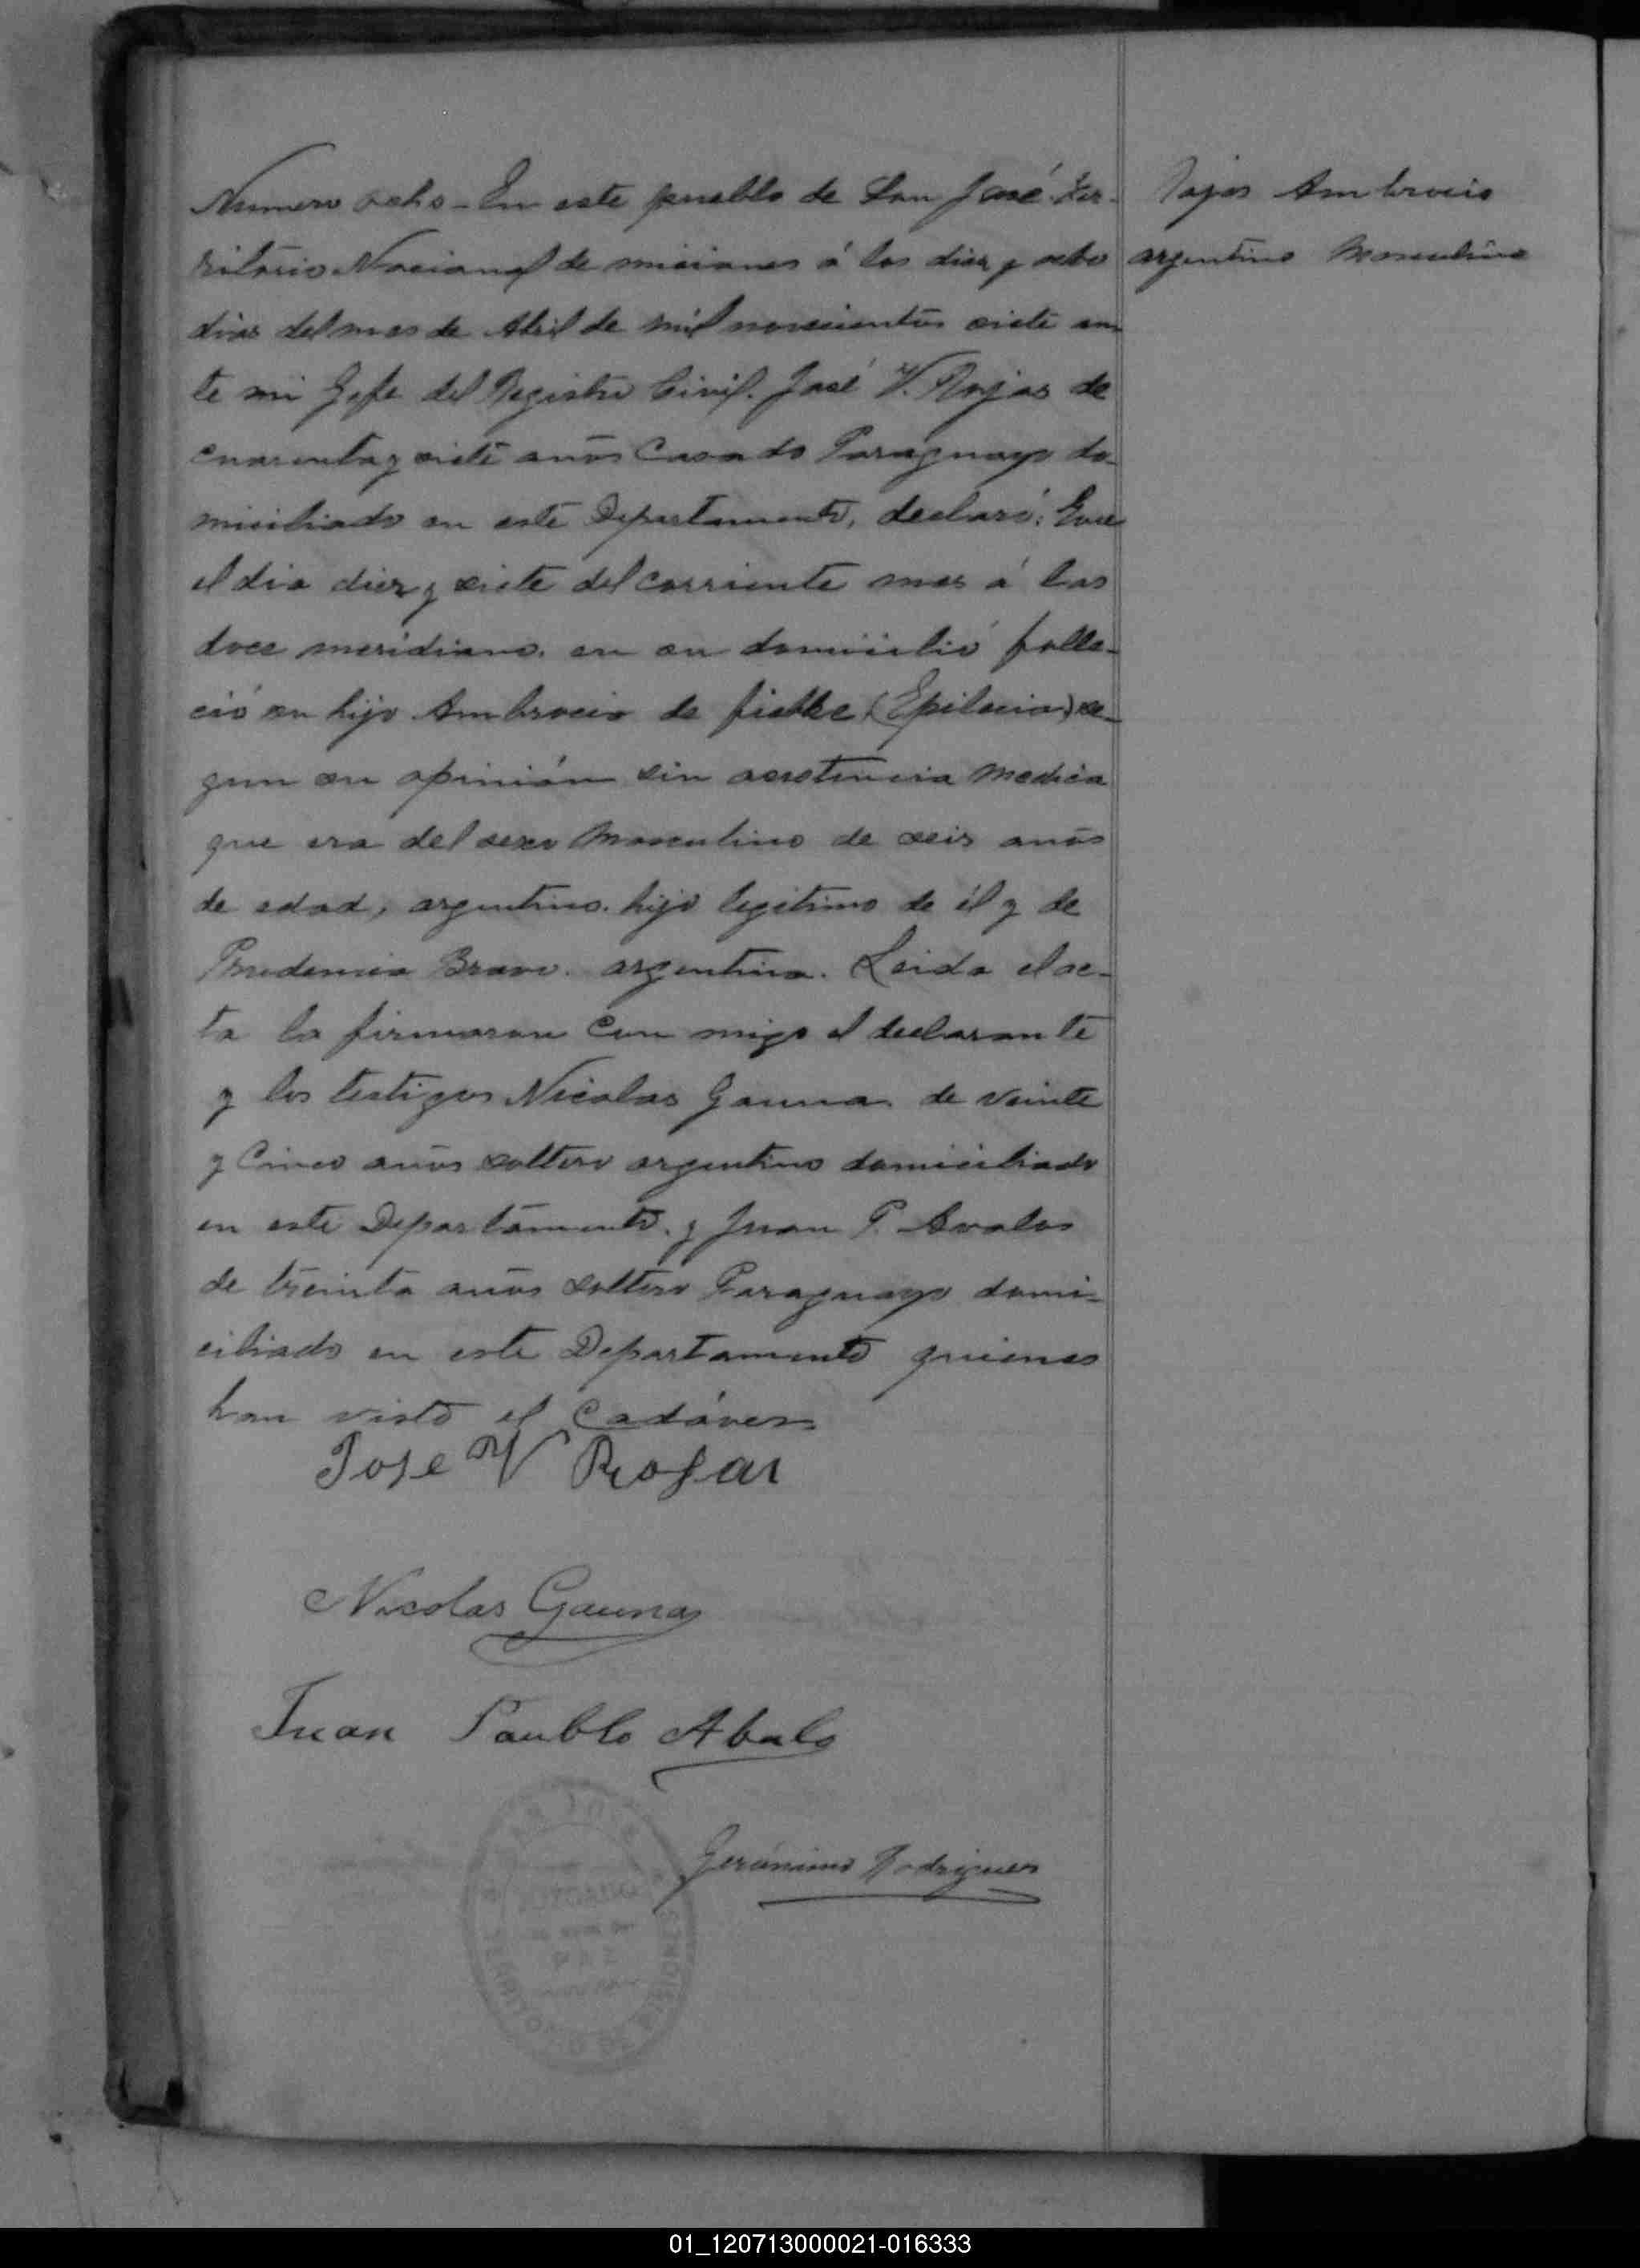 Numero ocho - En este pueblo de San José Ter-
ritorio Nacional de misiones á los diez y ocho
dias del mes de Abril de mil novecientos siete an
te mi Gefe del Registro Civil. José V. Rojas de
cuarenta y siete años Casado Paraguayo do-
miciliado en este Departamento, declaró: Que
el dia diez y siete del corriente mes á las
doce meridiano. en su domicilio falle-
ció su hijo Ambrocio de fiebre (Epilecia) se-
gun su opinión sin asistencia medica
que era del sexo Masculino de seis años
de edad, argentino. hijo legitimo de él y de
Prudencia Bravo. argentina. Leida el ac-
ta la firmaron Con migo el declarante
y los testigos Nicolas Gauna de veinte
y Cinco años soltero argentino domiciliado
en este Departamento. y Juan P. Avalos
de treinta años soltero Paraguayo domi-
ciliado en este Departamento quienes
han visto el Cadáver
Jose V Rojas
Nicolas Gauna
Juan Paublo Abalo
Gerónimo Rodriguez
Rojas Ambrocio
argentino Masculino
01_120713000021-016333